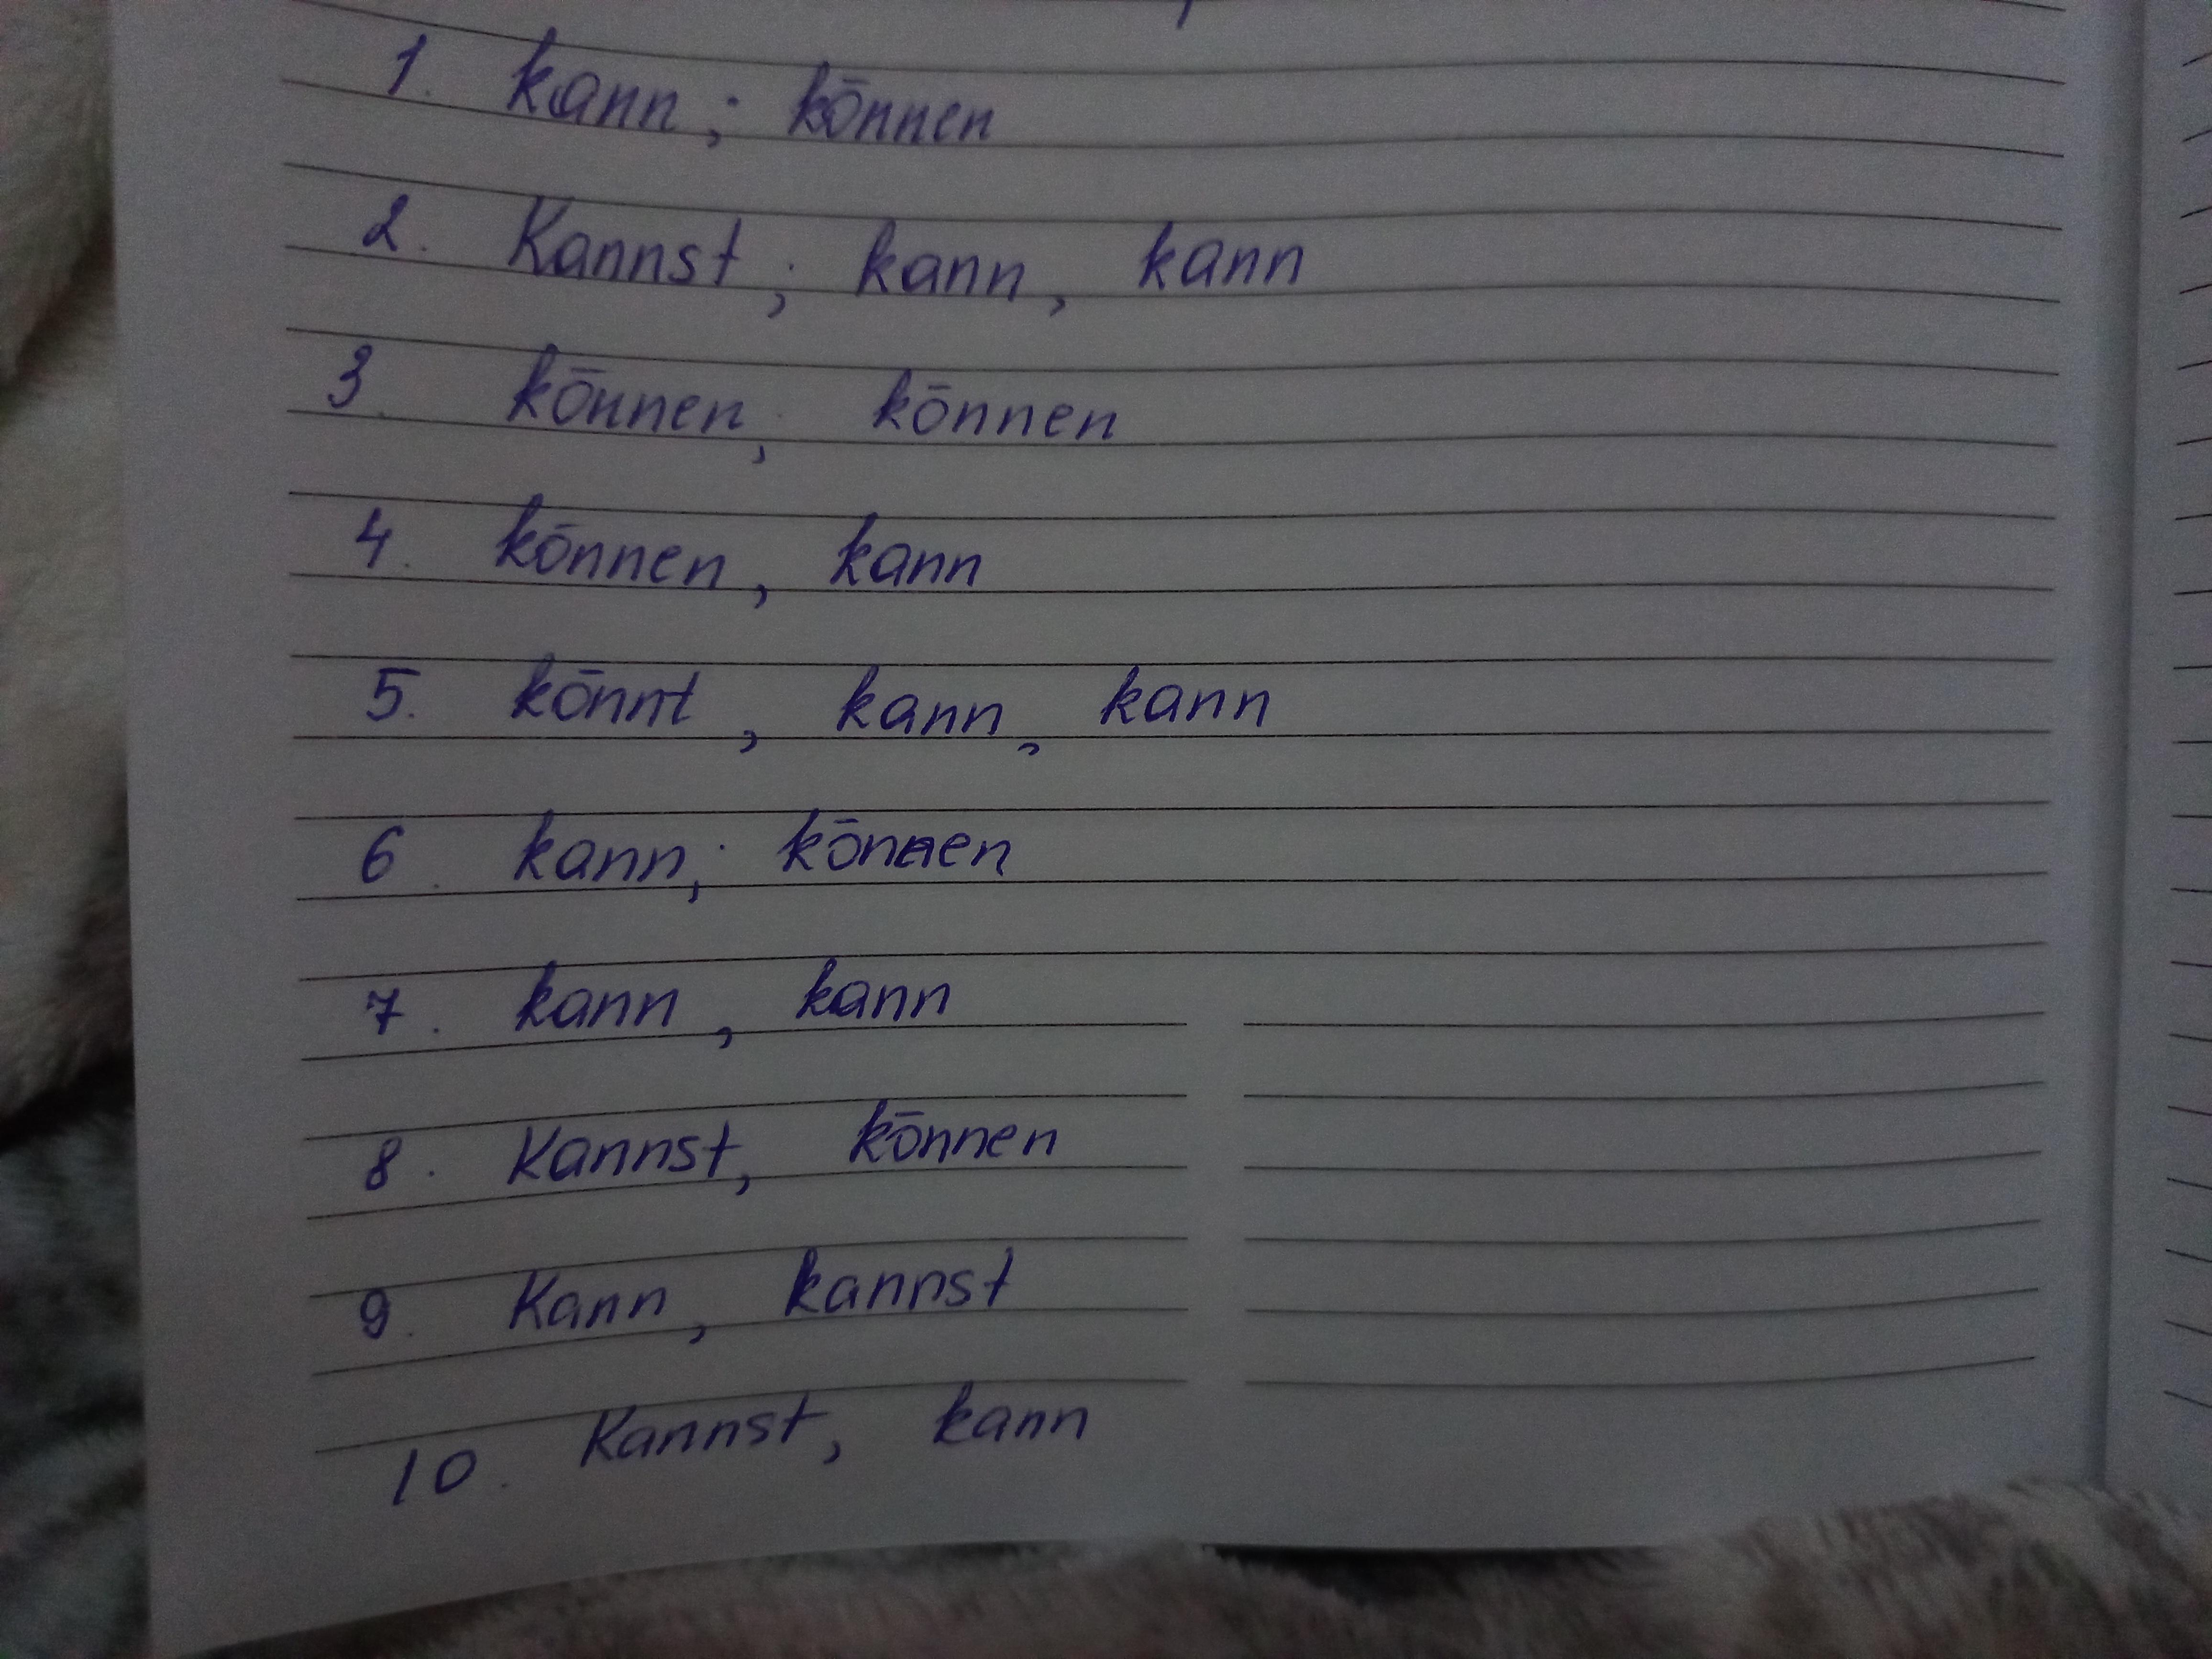 1. kann; kōnnen
2. Kannst; kann, kann
3. kōnnen; kōnnen
4. kōnnen, kann
5. kōnnt, kann, kann
6. kann; kōnnen
7. kann, kann
8. Kannst, kōnnen
9. Kann, kannst
10. Kannst, kann